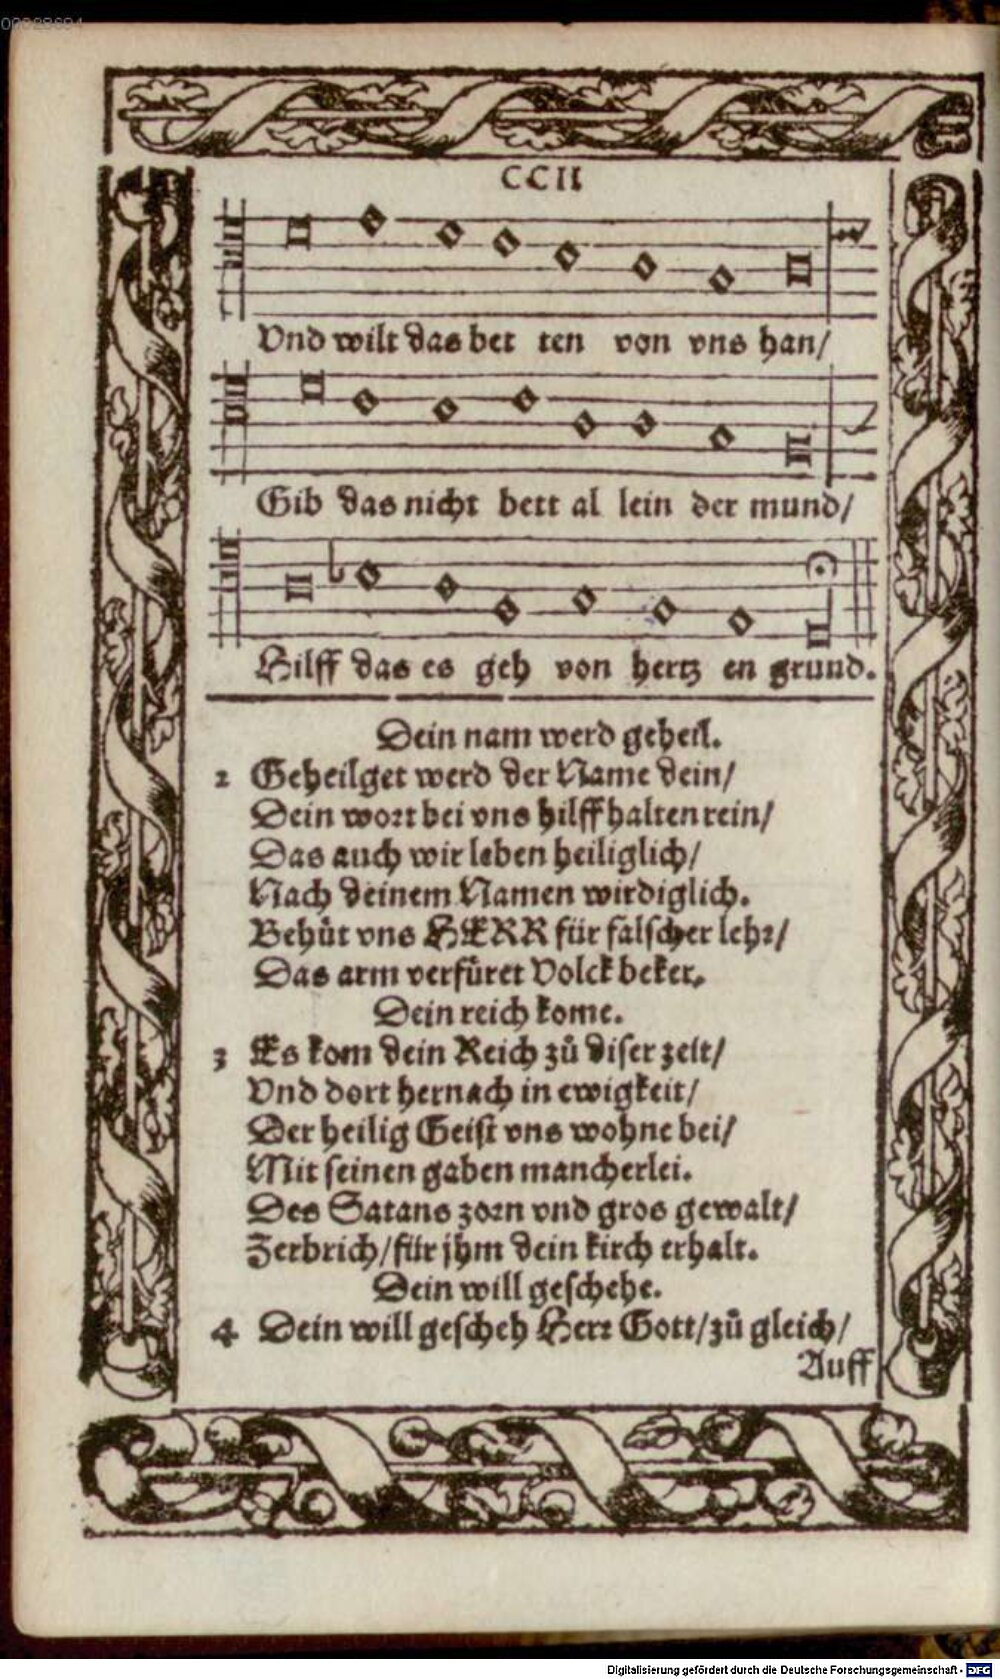 00028604
CCII
Vnd wilt das bet ten von vns han/
Gib das nicht bett al lein der mund/
Hilff das es geh von hertz en grund.
Dein nam werd geheil.
2 Geheilget werd der Name dein/
Dein wort bei vns hilff halten rein/
Das auch wir leben heiliglich/
Nach deinem Namen wirdiglich.
Behůt vns HERR für falscher lehr/
Das arm verfüret Volck beker.
Dein reich kome.
3 Es kom dein Reich zů diser zeit/
Vnd dort hernach in ewigkeit/
Der heilig Geist vns wohne bei/
Mit seinen gaben mancherlei.
Des Satans zorn vnd gros gewalt/
Zerbrich/für jhm dein kirch erhalt.
Dein will geschehe.
4 Dein will gescheh Herr Gott/zů gleich/
Auff
Digitalisierung gefördert durch die Deutsche Forschungsgemeinschaft - DFG